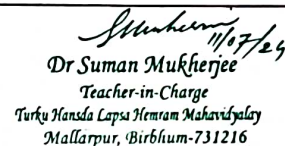 SMukherjee
11/07/24
Dr Suman Mukherjee
Teacher-in-Charge
Turku Hansda Lapsa Hemram Mahavidyalay
Mallarpur, Birbhum-731216